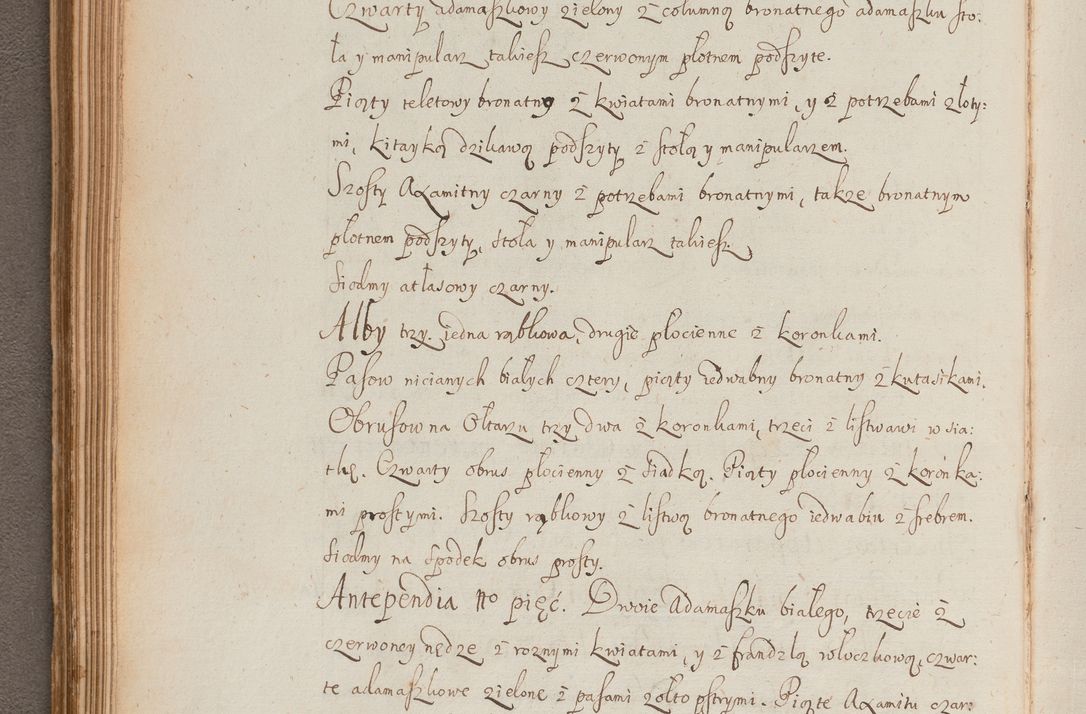 Czwarty adamaszkowy zielony z columną bronatnego adamaszku sto:
ła y manipularz takiesz czerwonym płotnem podszyte.
Piąty teletowy bronatny z kwiatami bronatnymi, y z potrzebami złoty:
mi, kitayką dzikawą podszyty z stołą y manipularzem.
Szosty Axamitny czarny z potrzebami bronatnymi, także bronatnym
płotnem podszyty, stoła y manipularz takiesz.
Siodmy atłasowy czarny.
Alby trzy. iedna rąbkowa, drugie płocienne z koronkami.
Pasow nicianych białych cztery, piąty iedwabny bronatny z kutasikami.
Obrusow na Ołtarzu trzy dwa z koronkami, trzeci z listwami w sia:
tkę. Czwarty obrus płocienny z siadką. Piąty płocienny z koronka:
mi prostymi. Szosty rąbkowy z listwą bronatnego iedwabiu z srebrem.
Siodmy na spodek obrus prosty.
Antependia No pięć. Dwoie Adamaszku białego, trzecie z
czerwoney nędze z roznymi kwiatami, y z frandzlą włoczkową, czwar:
te adamaszkowe zielone z pasami żołto pstrymi. Piąte Axamitu czar: